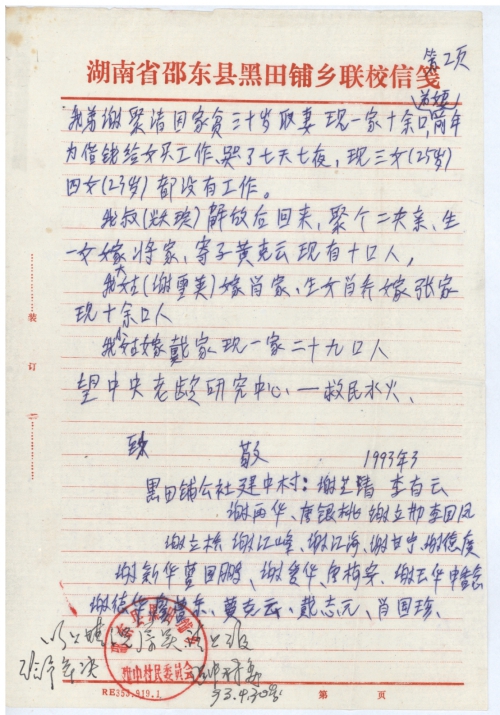 第2页
湖南省邵东县黑田铺乡联校信笺
我弟谢聚清因家贫三十岁取妻 现一家十余口,前年
为借钱给女买工作,哭了七天七夜,现三女(25岁)
四女(23岁)都没有工作。
我叔解放后回来,聚个二夹亲、生
一女嫁蒋家,寄子黄克云现有十口人,
我大姑(谢重英)嫁肖家、生女肖养嫁张家
现十余口人
我姑嫁戴家现一家二十九口人
望中央老龄研究中心、一救民水火、
致 敬 1993年3
黑田铺公社建中村:谢芝清 李百云
谢两华、唐银桃 谢立初 李国凤
谢立栋 谢江峰、谢江海、谢甘宁、谢德度
谢新华 曾国鹏、谢爱华、唐梅安、谢云华
谢德华 东、黄克云、戴志元、肖国珍、
以上情况
村民委员会
93.4.30
装
订
RE353.919.1
第 页